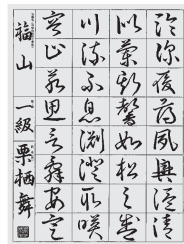 臨深履薄夙興温凊
似蘭斯馨如松之盛
川流不息淵澄取映
容止若思言辞安定
福山 一級 栗栖舞